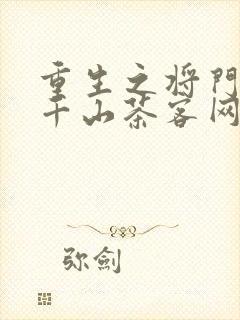 重生之将門
千山茶客网
弥劍